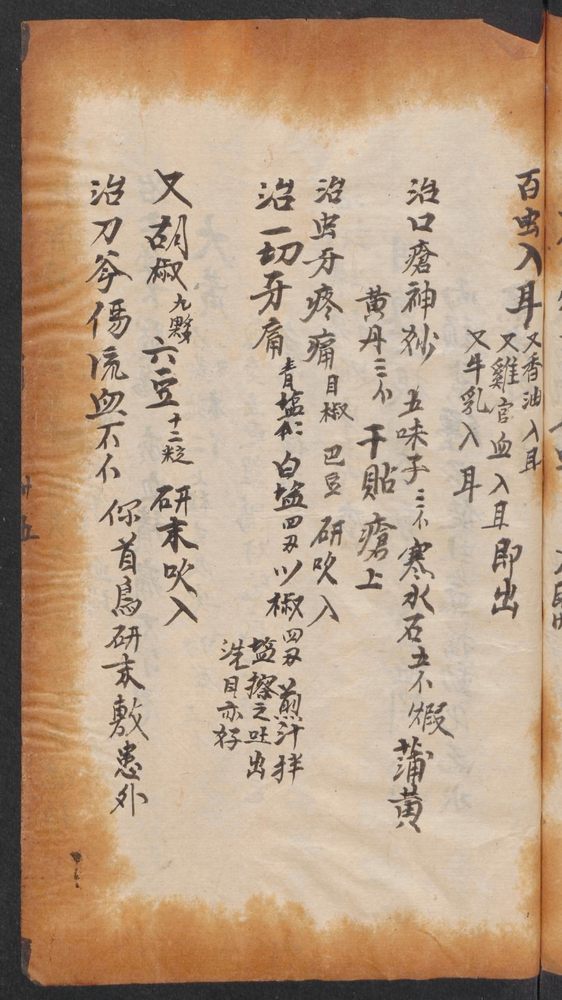 百虫入耳
又香油入耳
又雞官血入耳即出
又牛乳入耳
治口瘡神妙 五味子三个 寒水石五个煅 蒲黄
黄丹三个 干貼瘡上
治虫牙疼痛 目椒 巴豆 研吹入
治一切牙痛 青塩 白塩四刄 川椒四刄 煎汁拌
塩擦之吐出
洗目亦好
又胡椒九夥 六豆十二粒 研末吹入
治刀斧傷流血不个 你首烏研末敷患外